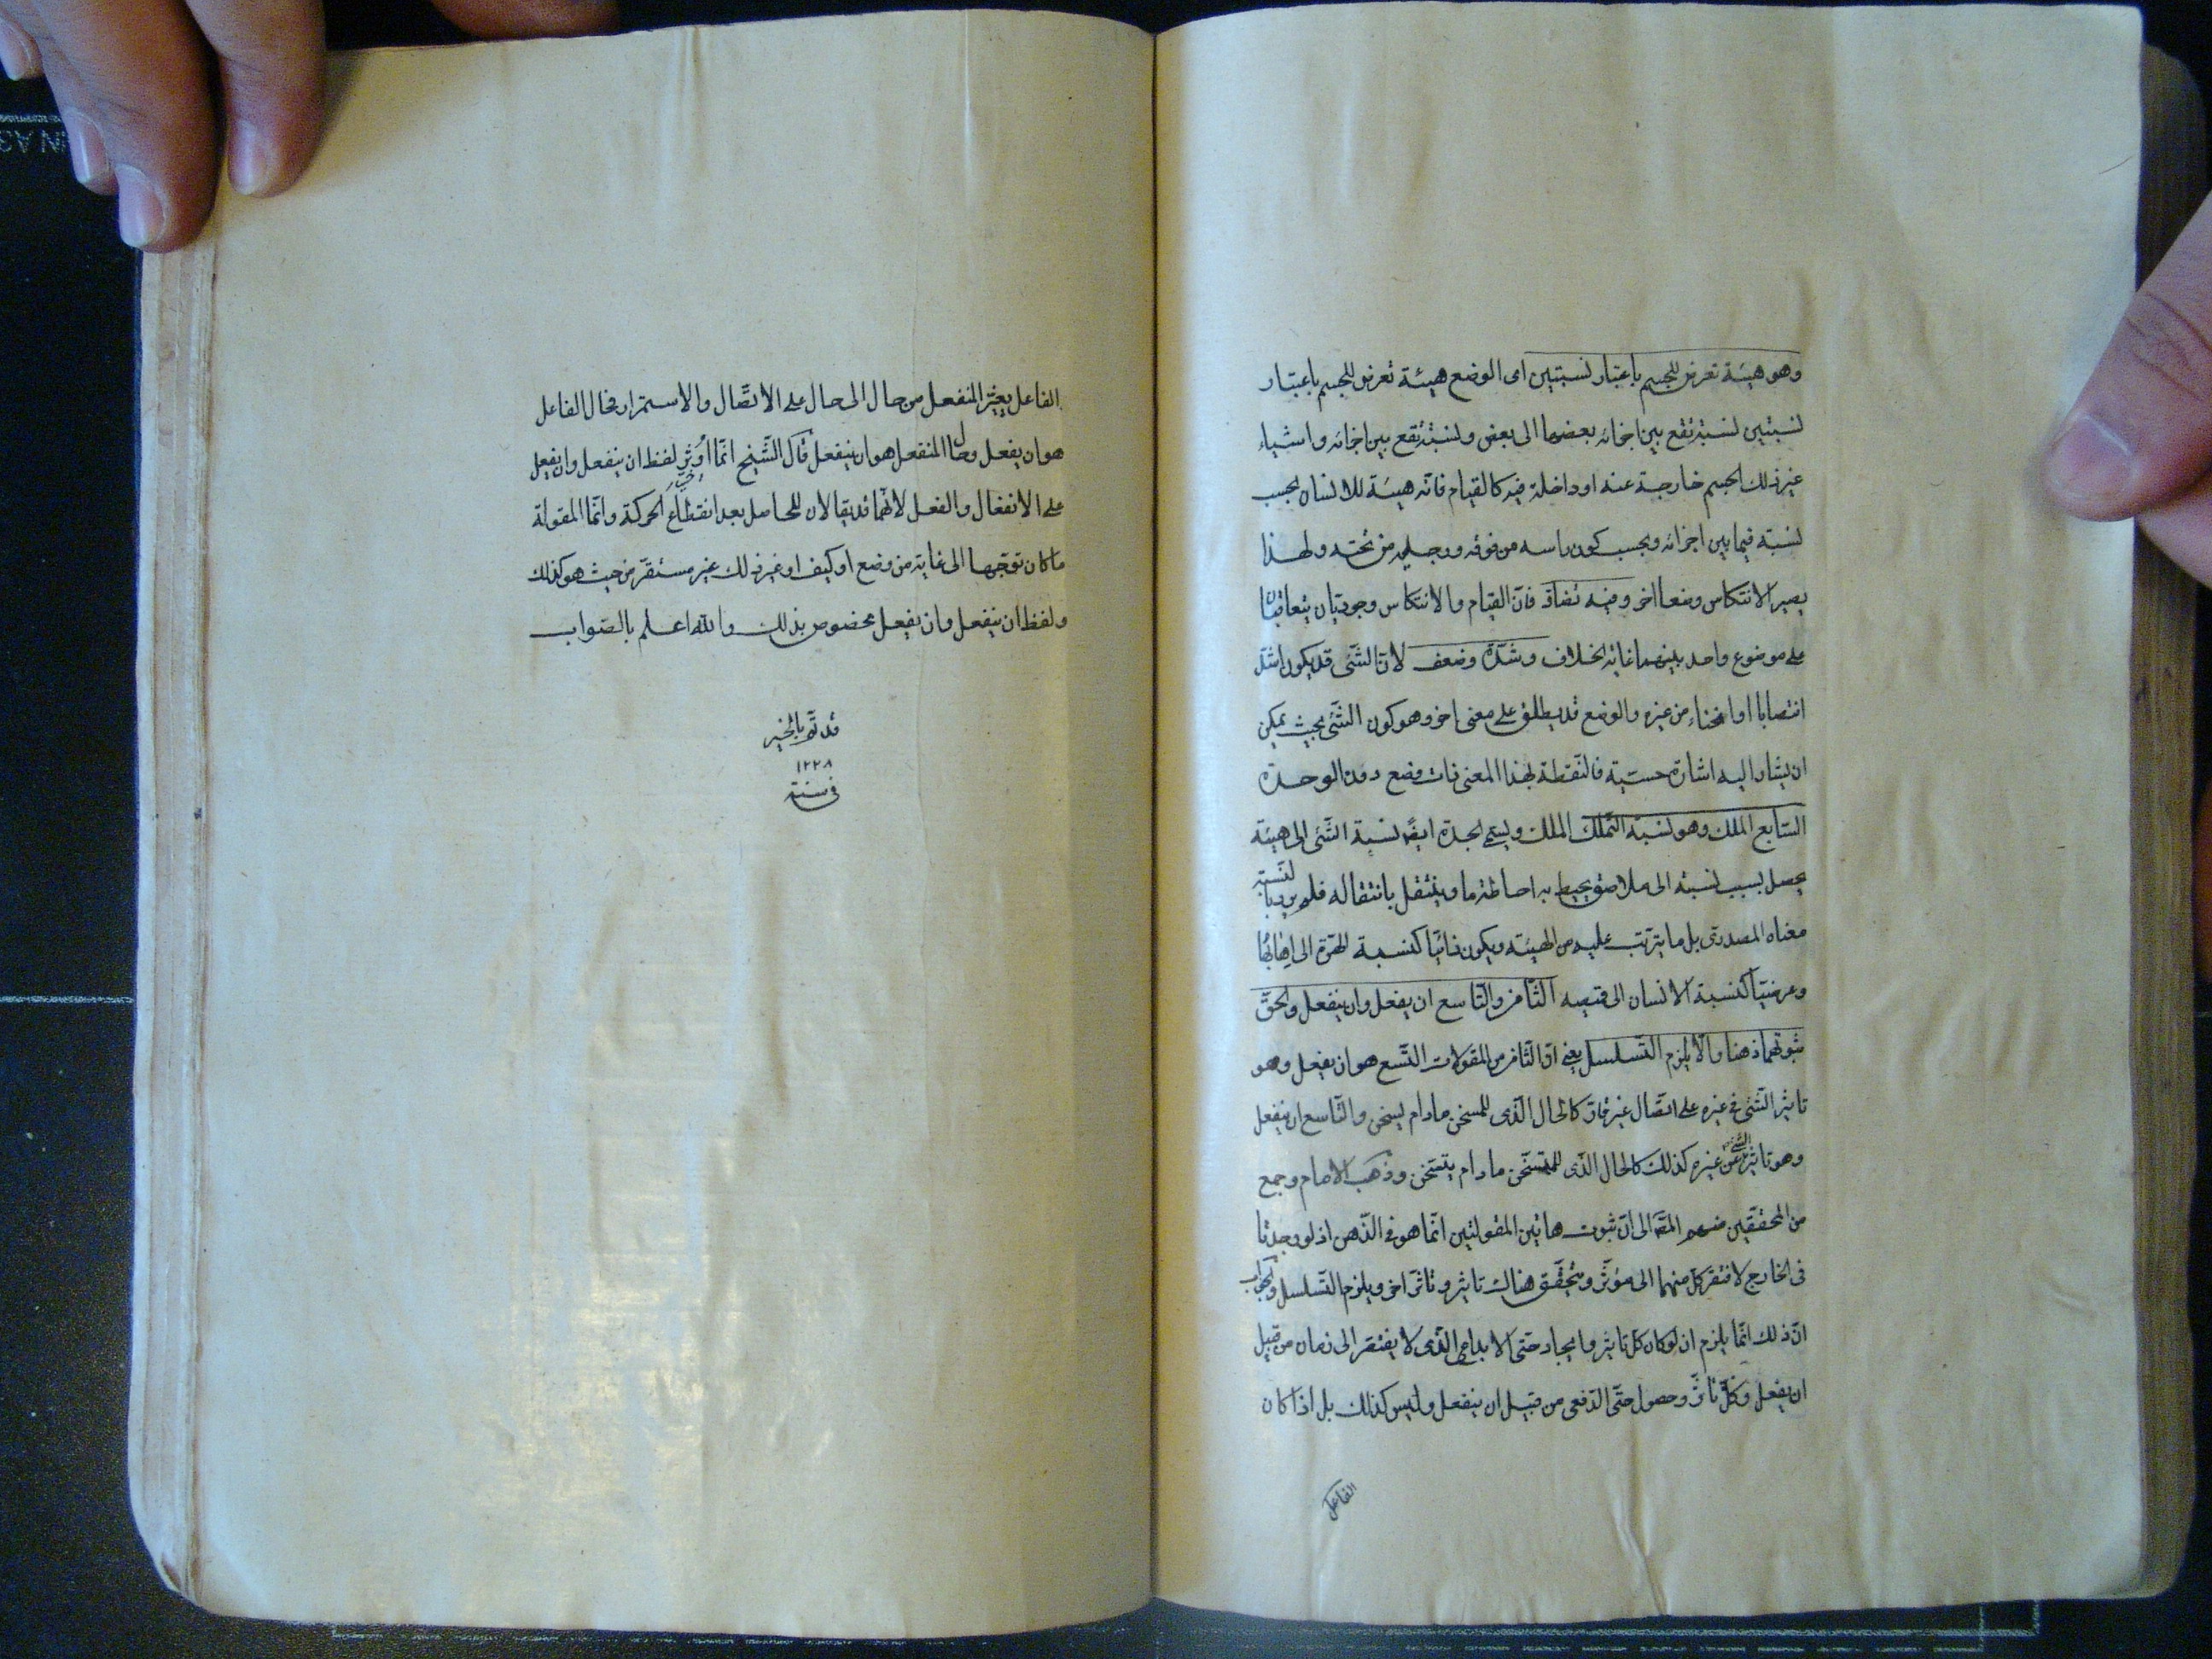 وهو هيئة تعرض للجسم باعتبار نسبتين اى الوضع هيئة تعرض للجسم باعتبار
نسبتين نسبة تقع بين اجزائه بعضها الى بعض ونسبة تقع بين اجزائه واشياء
غير ذلك الجسم خارجة عنه او داخلة فيه كالقيام فانه هيئة للانسان بحسب
نسبة فيما بين اجزائه وبحسب كون راسه من فوقه ورجليه من تحته ولهذا
يصير الانتكاس وضعا اخر وفيه تضادّ فانّ القيام والانتكاس وجوديّان يتعاقبان
على موضوع واحد بينهما غاية الخلاف وشدّة وضعف لانّ الشئ قد يكون اشدّ
انتصابا او انحناء من غيره والوضع قد يطلق على معنى اخر وهو كون الشئ بحيث يمكن
ان يشار اليه اشارة حسيّة فالنقطة بهذا المعنى ذات وضع دون الوحدة
السّابع الملك وهو نسبة التملّك الملك ويسمى الجدة ايضً نسبة الشئ الى هيئة
يحصل بسبب نسبته الى ملاصق يحيط به احاطة ما وينتقل بانتقاله فلم يرد بالنسبة
معناه المصدرى بل ما يترتب عليه من الهيئة ويكون ذاتيّا كنسبة الهرّة الى اهابها
وعرضيّا كنسبة الانسان الى قميصه الثّامن والتّاسع ان يفعل وان ينفعل والحقّ
ثبوتهما ذهنا والّا يلزم التّسلسل يعنى انّ الثّامن من المقولات التّسع هو ان يفعل وهو
تاثير الشّئ فى غيره على اتّصال غير قارّ كالحال الّذى للمسخن مادام يسخن والتّاسع ان ينفعل
وهو تاثّر الشّئ عن غيره كذلك كالحال الّذى للمتسخّن مادام يتسخّن وذهب الامام وجمع
من المحقّقين منهم المصّ الى انّ ثبوت هاتين المقولتين انّما هو فى الذّهن اذ لو وجدتا
فى الخارج لافتقر كلّ منهما الى مؤثّر ويتحقّق هناك تاثير وتاثّر اخر ويلزم التّسلسل والجواب
انّ ذلك انّما يلزم ان لو كان كلّ تاثير وايجاد حتّى الابداعى الّذى لا يفتقر الى زمان من قبيل
ان يفعل وكلّ تاثّر وحصول حتّى الدّفعى من قبيل ان ينفعل وليس كذلك بل اذا كان
الفاعل
الفاعل يغيّر المنفعل من حال الى حال على الاتّصال والاستمرار فحال الفاعل
هو ان يفعل وحال المنفعل هو ان ينفعل قال الشّيخ انّما اوثر لفظ ان ينفعل وان يفعل
على الانفعال والفعل لانّهما قد يقالان للحاصل بعد انقطاع الحركة وانّما المقولة
ما كان توجّها الى غاية من وضع او كيف او غير ذلك غير مستقرّ من حيث هو كذلك
ولفظ ان ينفعل وان يفعل مخصوص بذلك والله اعلم بالصّواب
قد تمّ بالخير
١٢٢٨
فى سنة